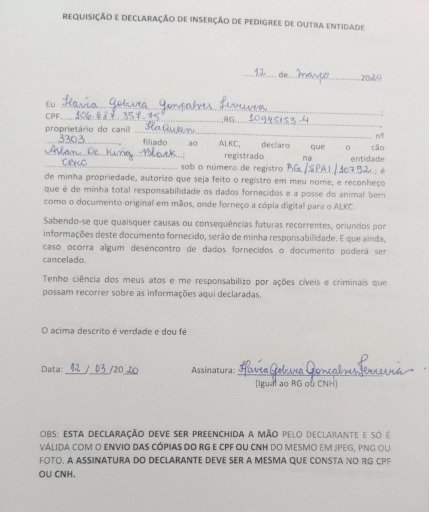 REQUISIÇÃO E DECLARAÇÃO DE INSERÇÃO DE PEDIGREE DE OUTRA ENTIDADE
12 de março 2020
Eu Flavia Gonçalves Ferreira
CPF ;RG
proprietário do canil nº
3303, filiado ao ALKC, declaro que o cão
Arlan De King Black, registrado na entidade
sob o número de registro RG/SPAI/10792; é
de minha propriedade, autorizo que seja feito o registro em meu nome, e reconheço
que é de minha total responsabilidade os dados fornecidos e a posse do animal bem
como o documento original em mãos, onde forneço a cópia digital para o ALKC.
Sabendo-se que quaisquer causas ou consequências futuras recorrentes, oriundos por
informações deste documento fornecido, serão de minha responsabilidade. E que ainda,
caso ocorra algum desencontro de dados fornecidos o documento poderá ser
cancelado.
Tenho ciência dos meus atos e me responsabilizo por ações cíveis e criminais que
possam recorrer sobre as informações aqui declaradas.
O acima descrito é verdade e dou fé
Data: 12 / 03 /2020 Assinatura: Flavia Gonçalves Ferreira
(Igual ao RG ou CNH)
OBS: ESTA DECLARAÇÃO DEVE SER PREENCHIDA A MÃO PELO DECLARANTE E SÓ É
VÁLIDA COM O ENVIO DAS CÓPIAS DO RG E CPF OU CNH DO MESMO EM JPEG, PNG OU
FOTO. A ASSINATURA DO DECLARANTE DEVE SER A MESMA QUE CONSTA NO RG CPF
OU CNH.